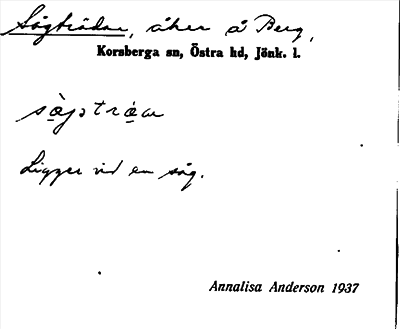 Sågträdan, åker å Berg,
Korsberga sn, Östra hd, Jönk. l.
Ligger vid en såg.
Annalisa Anderson 1937